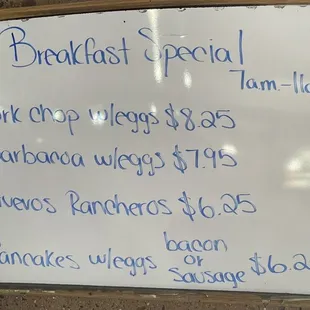 Breakfast Special
7am.-11a
rk chop w/eggs $8.25
arbacoa w/eggs $7.95
uevos Rancheros $6.25
ancakes w/eggs bacon or Sausage $6.2